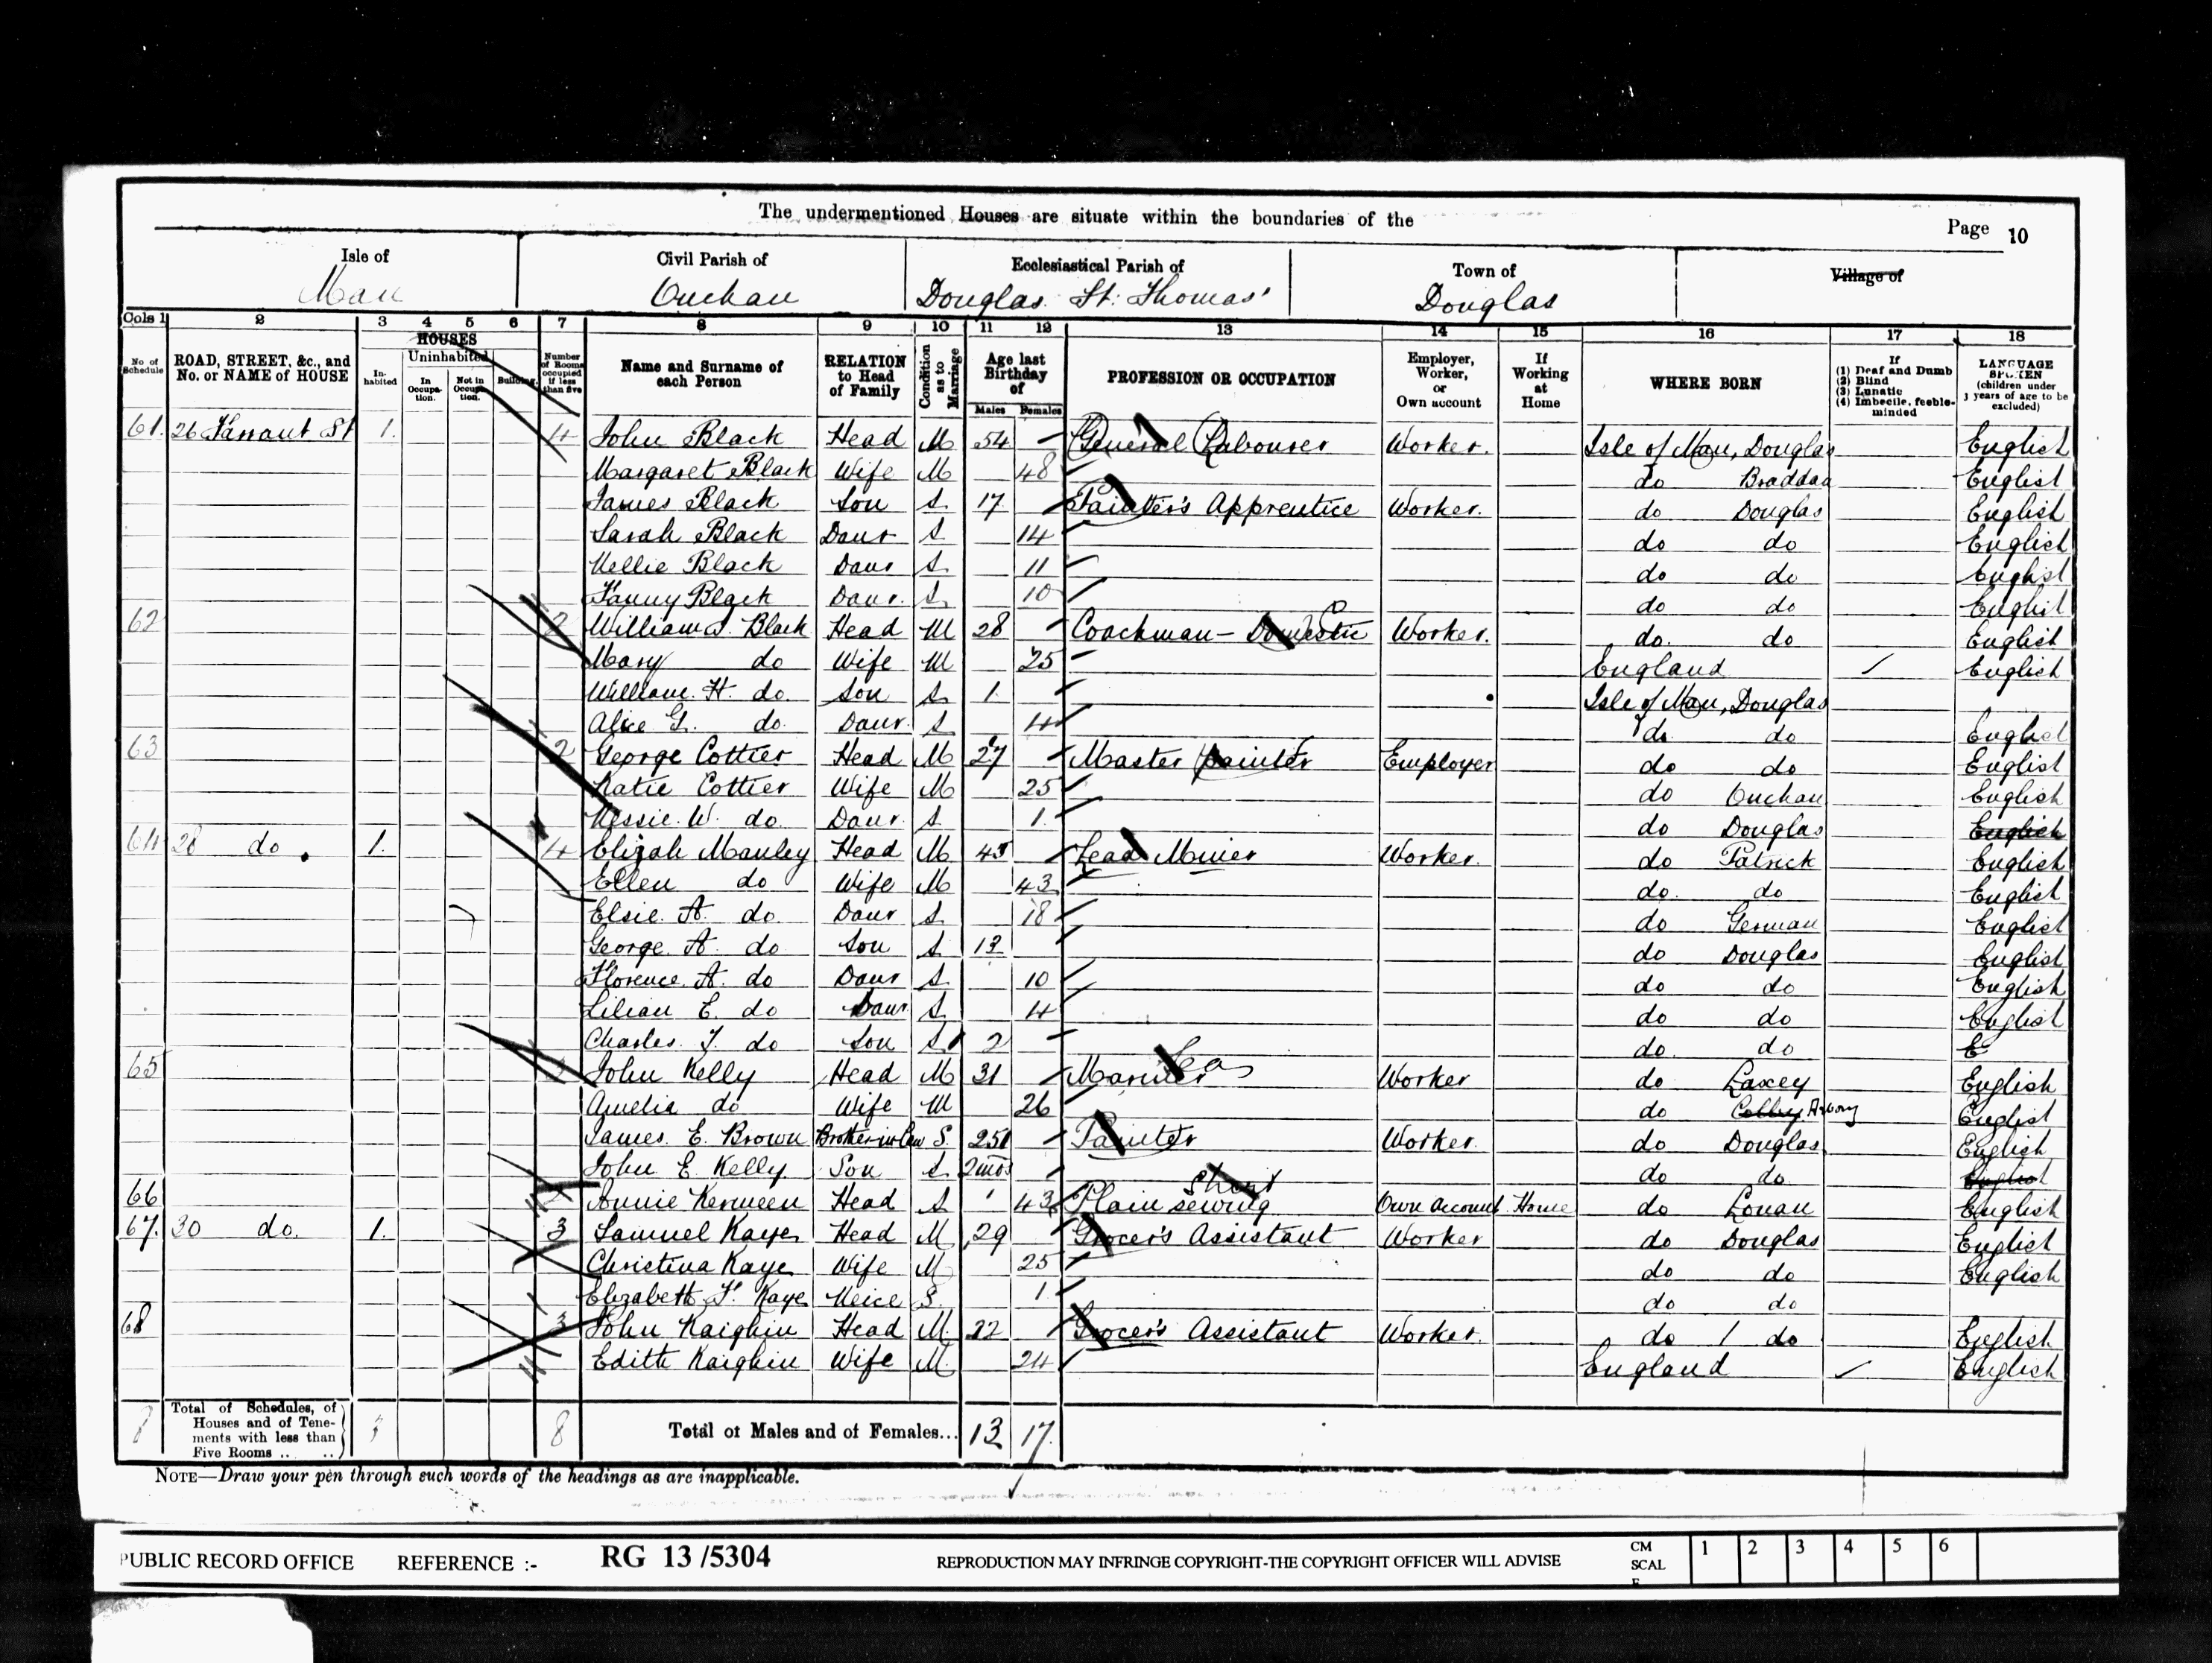 The undermentioned Houses are situate within the boundaries of the
Page 10
Isle of Man
Civil Parish of Onchan
Ecclesiastical Parish of Douglas St: Thomas'
Town of Douglas
Village of
Cols 1 2 3 4 5 6 7 8 9 10 11 12 13 14 15 16 17 18
No of Schedule
ROAD, STREET, &c., and No. or NAME of HOUSE
HOUSES
Inhabited
Uninhabited
In Occupation.
Not in Occupation.
Building.
Number of Rooms occupied if less than five
Name and Surname of each Person
RELATION to Head of Family
Condition as to Marriage
Age last Birthday of
Males Females
PROFESSION OR OCCUPATION
Employer, Worker, or Own account
If Working at Home
WHERE BORN
If
(1) Deaf and Dumb
(2) Blind
(3) Lunatic
(4) Imbecile, feeble-minded
LANGUAGE SPOKEN (children under 3 years of age to be excluded)
61. 26 St 1. 4 John Black Head M 54 General Labourer Worker. Isle of Man, Douglas English
Margaret Black Wife M 48 do Braddan English
James Black Son S. 17 Painter's Apprentice Worker. do Douglas English
Sarah Black Daur S 14 do do English
Nellie Black Daur S. 11 do do English
Fanny Black Daur. S. 10 do do English
62 2 William J. Black Head M 28 Coachman - Domestic Worker. do. do English
Mary do Wife M 25 England English
William. H. do. Son S 1. Isle of Man, Douglas
Alice G. do. Daur. S 4 do. do English
63 2 George Cottier Head M 27 Master painter Employer do do English
Katie Cottier Wife M 25 do Onchan English
Messie. W. do. Daur. S. 1. do Douglas English
64 28 do. 1. 4 Elijah Manley Head M 45 Lead Miner Worker. do Patrick English
Ellen do Wife M 43 do. do English
Elsie. A. do Daur S. 18 do German English
George. A. do Son S 13 do Douglas English
Florence. A. do Daur S. 10 do do English
Lilian E. do Daur S. 4 do do English
Charles. J. do Son S 2 do. do E
65 John Kelly Head M 31 Sea Mariner Worker do Laxey English
Amelia do Wife M 26 do Colby Arbory English
James. E. Brown Brother in law S. 25 Painter Worker. do Douglas English
John E. Kelly. Son S 2mos do do. English
66 2 Annie Kerween Head S 43 Shirt Plain sewing Own Account Home do Lonan English
67. 30 do. 1. 3 Samuel Kaye Head M 29 Grocer's Assistant Worker do Douglas English
Christina Kaye Wife M 25 do do English
Elizabeth F. Kaye Neice S. 1. do do
68 3 John Kaighin Head M. 22 Grocer's Assistant Worker. do do English
Edith Kaighin Wife M. 24 England English
8 Total of Schedules, of Houses and of Tenements with less than Five Rooms .. .. 3 8 Total of Males and of Females... 13 17.
NOTE—Draw your pen through such words of the headings as are inapplicable.
PUBLIC RECORD OFFICE REFERENCE :- RG 13 /5304 REPRODUCTION MAY INFRINGE COPYRIGHT-THE COPYRIGHT OFFICER WILL ADVISE CM SCALE 1 2 3 4 5 6